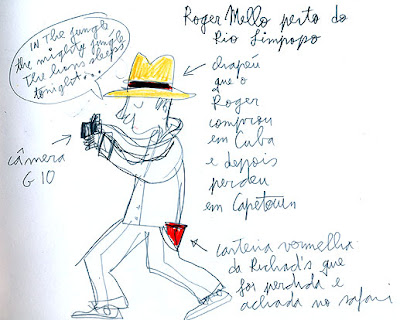 Roger Mello perto do
Rio Limpopo
In The jungle
the mighty jungle
The lion sleeps
tonight...
chapéu
que o
Roger
comprou
em Cuba
e depois
perdeu
em Capetown
câmera
G 10
carteira vermelha
da Richard's que
foi perdida e
achada no safari